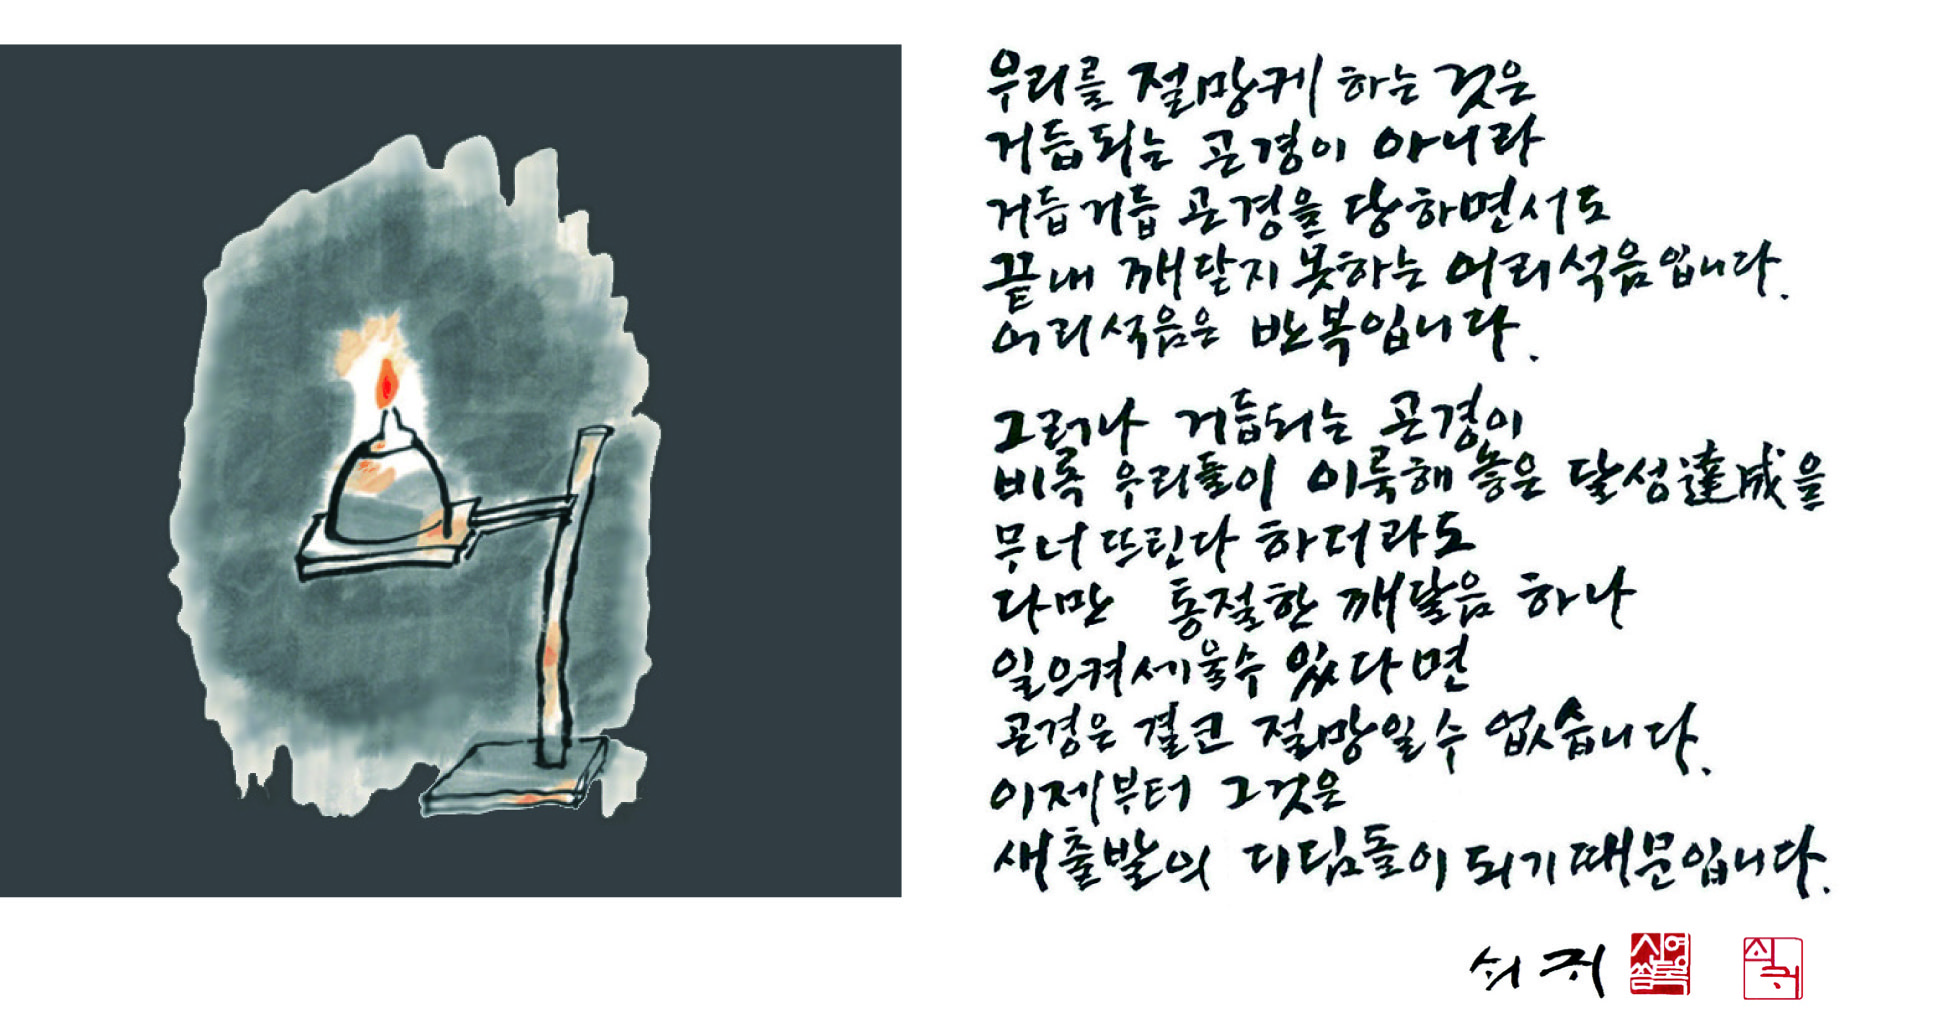 우리를 절망케 하는 것은
거듭되는 곤경이 아니라
거듭거듭 곤경을 당하면서도
끝내 깨닫지 못하는 어리석음입니다.
어리석음은 반복입니다.
그러나 거듭되는 곤경이
비록 우리들이 이룩해 놓은 달성達成을
무너뜨린다 하더라도
다만 통절한 깨달음 하나
일으켜세울수 있다면
곤경은 결코 절망일수 없습니다.
이제부터 그것은
새출발의 디딤돌이 되기때문입니다.
쇠귀